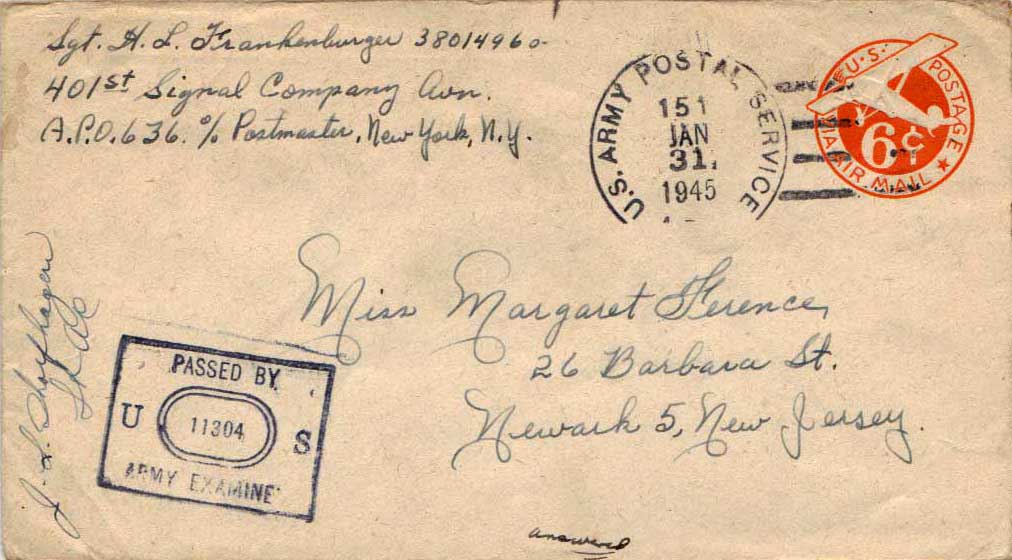 Sgt. H. L. Frankenburger 38014960
401st Signal Company Avn.
A.P.O. 636. % Postmaster, New York, N.Y.
U.S. ARMY POSTAL SERVICE
151
JAN
31
1945
U.S. POSTAGE
6¢
VIA AIR MAIL
Miss Margaret Ference,
26 Barbara St.
Newark 5, New Jersey.
J. L.
PASSED BY
U 11304 S
ARMY EXAMINE
answered